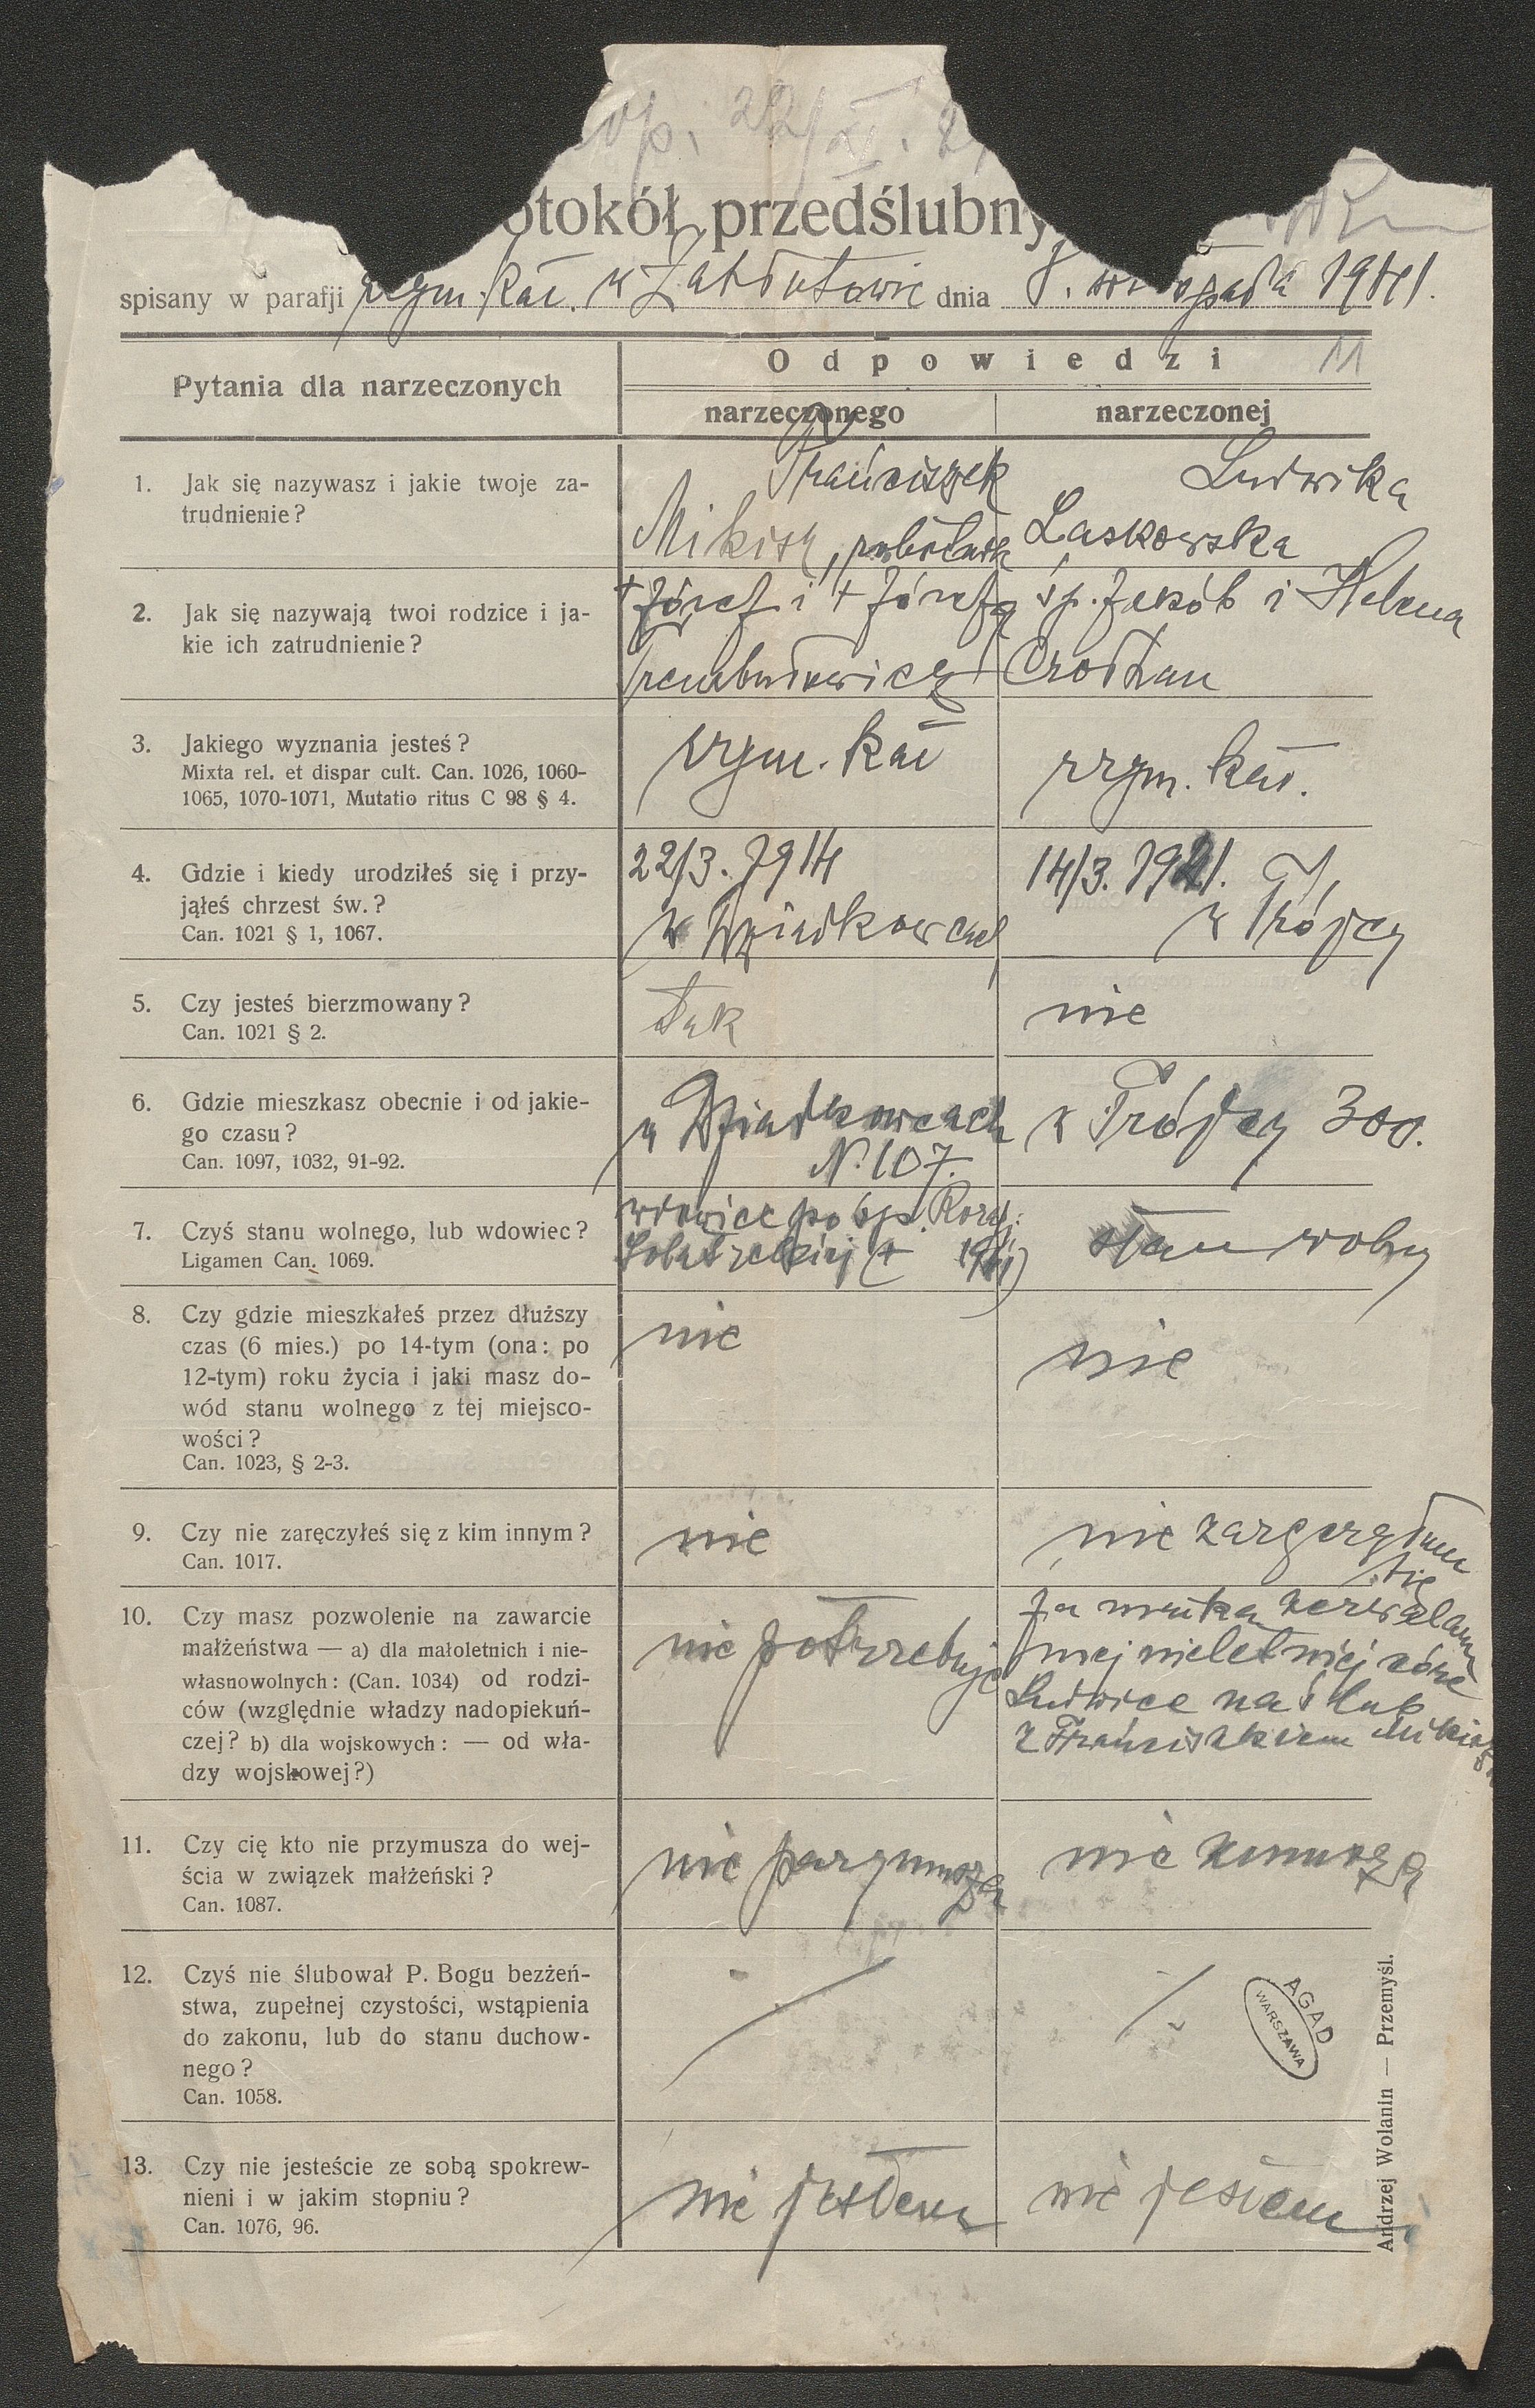 op. 22/XI. 
otokół przedślubny
spisany w parafji rzym. kat. w Zabłotowie dnia 8. listopada 1941.
Pytania dla narzeczonych
Odpowiedzi 11
narzeczonego narzeczonej
1. Jak się nazywasz i jakie twoje za-
trudnienie?
Franciszek
Mikisz, robotnik
Ludwika
Laskowska
2. Jak się nazywają twoi rodzice i ja-
kie ich zatrudnienie?
+ Józef i + Józefa
Trembułowicz
śp. Jakób i Helena
3. Jakiego wyznania jesteś?
Mixta rel. et dispar cult. Can. 1026, 1060-
1065, 1070-1071, Mutatio ritus C 98 § 4.
rzym. kat
rzym. kat.
4. Gdzie i kiedy urodziłeś się i przy-
jąłeś chrzest św.?
Can. 1021 § 1, 1067.
22/3. 1914
w Dziadkowcach
14/3. 1921.
w Trójcy
5. Czy jesteś bierzmowany?
Can. 1021 § 2.
tak
nie
6. Gdzie mieszkasz obecnie i od jakie-
go czasu?
Can. 1097, 1032, 91-92.
w Dziadkowcach
N. 107.
w Trójcy 300.
7. Czyś stanu wolnego, lub wdowiec?
Ligamen Can. 1069.
wdowiec po śp. Rozalji
(+ 1941)
stan wolny
8. Czy gdzie mieszkałeś przez dłuższy
czas (6 mies.) po 14-tym (ona: po
12-tym) roku życia i jaki masz do-
wód stanu wolnego z tej miejsco-
wości?
Can. 1023, § 2-3.
nie
nie
9. Czy nie zaręczyłeś się z kim innym?
Can. 1017.
nie
nie zaręczyłam
się
10. Czy masz pozwolenie na zawarcie
małżeństwa — a) dla małoletnich i nie-
własnowolnych: (Can. 1034) od rodzi-
ców (względnie władzy nadopiekuń-
czej? b) dla wojskowych: — od wła-
dzy wojskowej?)
nie potrzebuję
Ja matka zezwalam
mej nieletniej córce
Ludwice na ślub
z Franciszkiem Mikiszem
11. Czy cię kto nie przymusza do wej-
ścia w związek małżeński?
Can. 1087.
nie przymuszają
nie zmuszają
12. Czyś nie ślubował P. Bogu bezżeń-
stwa, zupełnej czystości, wstąpienia
do zakonu, lub do stanu duchow-
nego?
Can. 1058.
AGAD
WARSZAWA
13. Czy nie jesteście ze sobą spokrew-
nieni i w jakim stopniu?
Can. 1076, 96.
nie jestem
nie jestem
Andrzej Wolanin — Przemyśl.